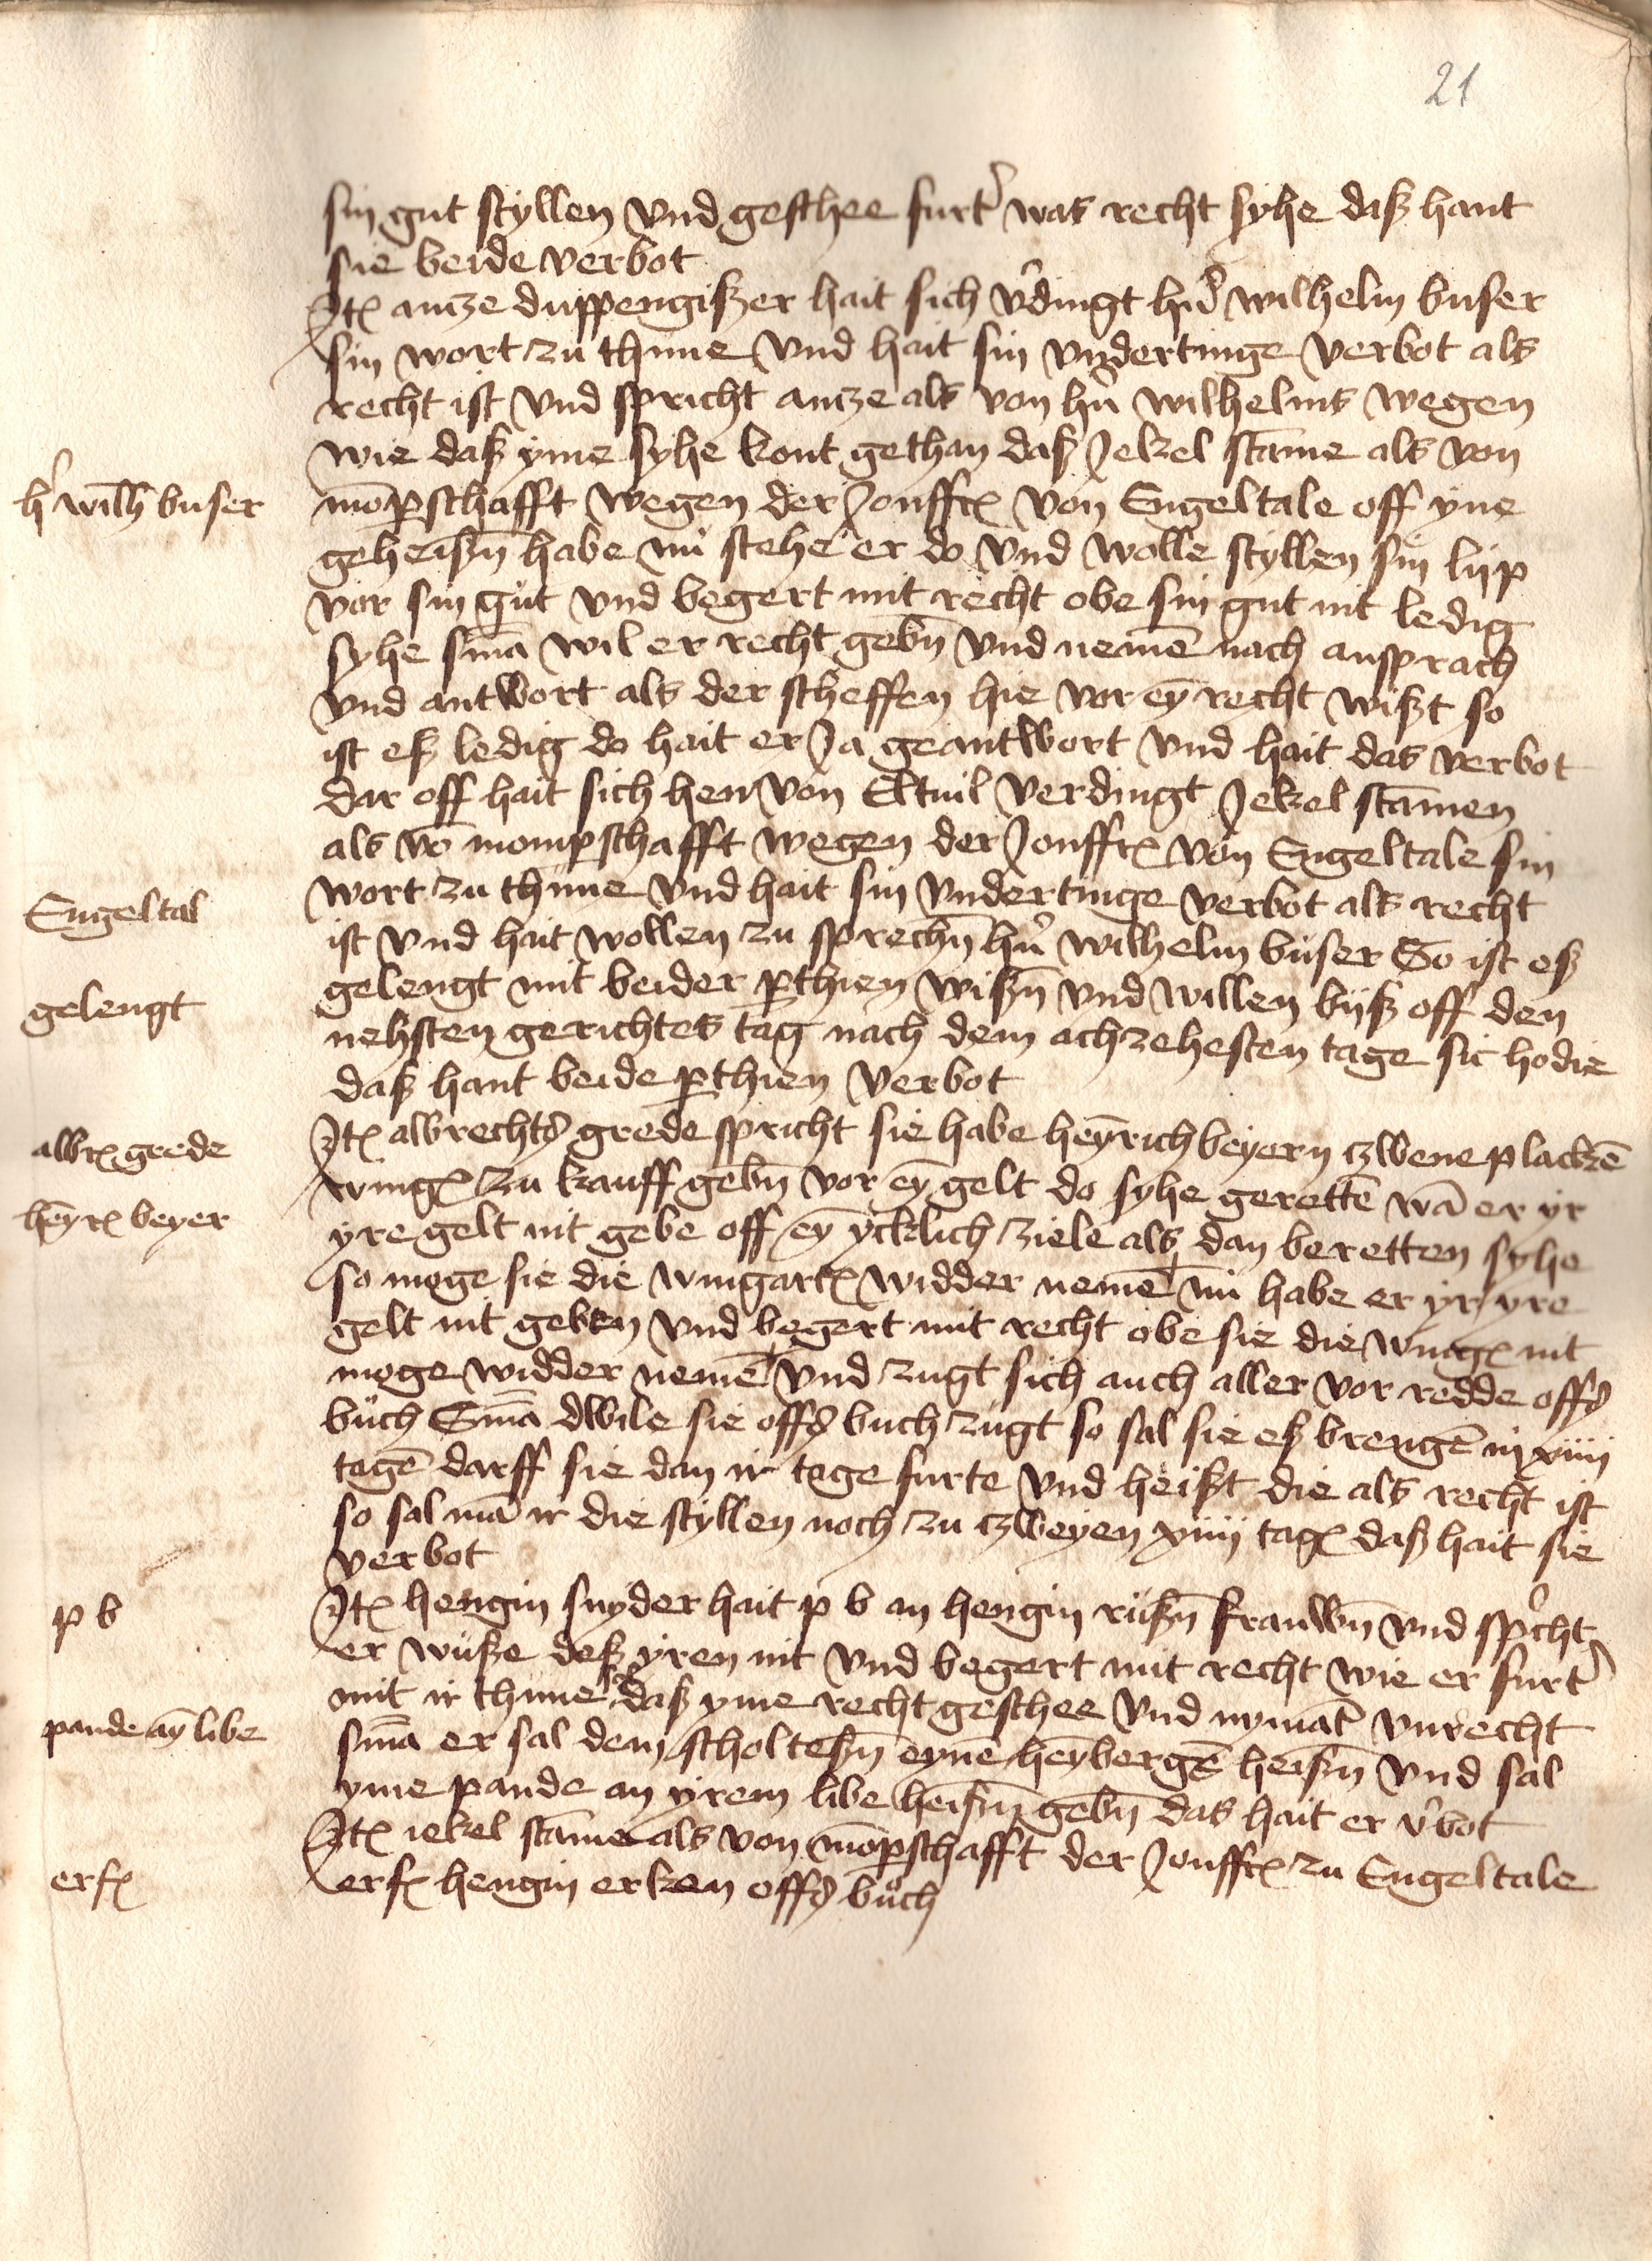 21
sin gut styllen vnd geschee furt' was recht syhe daß hant
sie beide verbot
Jtē antze duppengißer hait sich v'dingt h'n wilhelm buser
sin wort zu thune vnd hait sin vndertinge verbot als
recht ist vnd spricht antze als von h'n wilhelms wegen
wie daß yme syhe kont gethan daß Jekel stāme als von
h' wilh buser
mōpschafft wegen der Jonffrē von Engeltale off yne
geheißn̄ habe nü stehe er do vnd wolle styllen sin lijp
vor sin güt vnd begert mit recht obe sin gut nit ledig
syhe sm̄a wil er recht gebn̄ vnd nemē nach ansprach
vnd antwort als der scheffen hie vor eȳ recht wißt so
ist eß ledig do hait er Ja geantwort vnd hait das verbot
dar off hait sich hen von Eltuil verdingt Jekel stāmen
als vō mompschafft wegen der Jonffrē von Engeltale sin
wort zu thune vnd hait sin vndertinge verbot als recht
Engeltal
ist vnd hait wollen zu sprechn̄ h'n wilhelm büser So ist eß
gelengt mit beider pthien wißn̄ vnd willen bijß off den
gelengt
nehsten gerichtes tag nach dem achzehesten tage sic hodie
daß hant beide pthien verbot
Jtē albrechts grede spricht sie habe heȳrich beyern czwene plackē
albrē grede
wingē zu kauff gebn̄ vor eȳ gelt do syhe gerettē wā er yr
heȳrē beyer
yre gelt nit gebe off eȳ ycklich ziele als dan beretten syhe
so moge sie die wingartē widder nemē nü habe er yr yre
gelt nit geben vnd begert mit recht obe sie die wingē nit
moge widder nemē vnd zugt sich auch aller vor redde offs
büch Sm̄a dwile sie offs buch zügt so sal sie eß brengē in xiiii
tagē darff sie dan ir tage furte vnd heißt die als recht ist
so sal mā ir die styllen noch zu czweyen xiiii tagē daß hait sie
verbot
Jtē hengin snyder hait p b an hengin rüßn̄ frauwn̄ vnd sp'cht
p b
er wüße deß yren nit vnd begert mit recht wie er furt'
mit ir thune daß yme recht geschee vnd nymāt vnrecht
pande an̄ libe
sm̄a er sal dem scholteßn̄ eynē heȳbergē heißn̄ vnd sal
yme pande an yrem libe heißn̄ gebn̄ das hait er v'bot
Jtē iekel stāme als von mōpschafft der Jonffrē zu Engeltale
erfē
erfē hengin erken offs büch